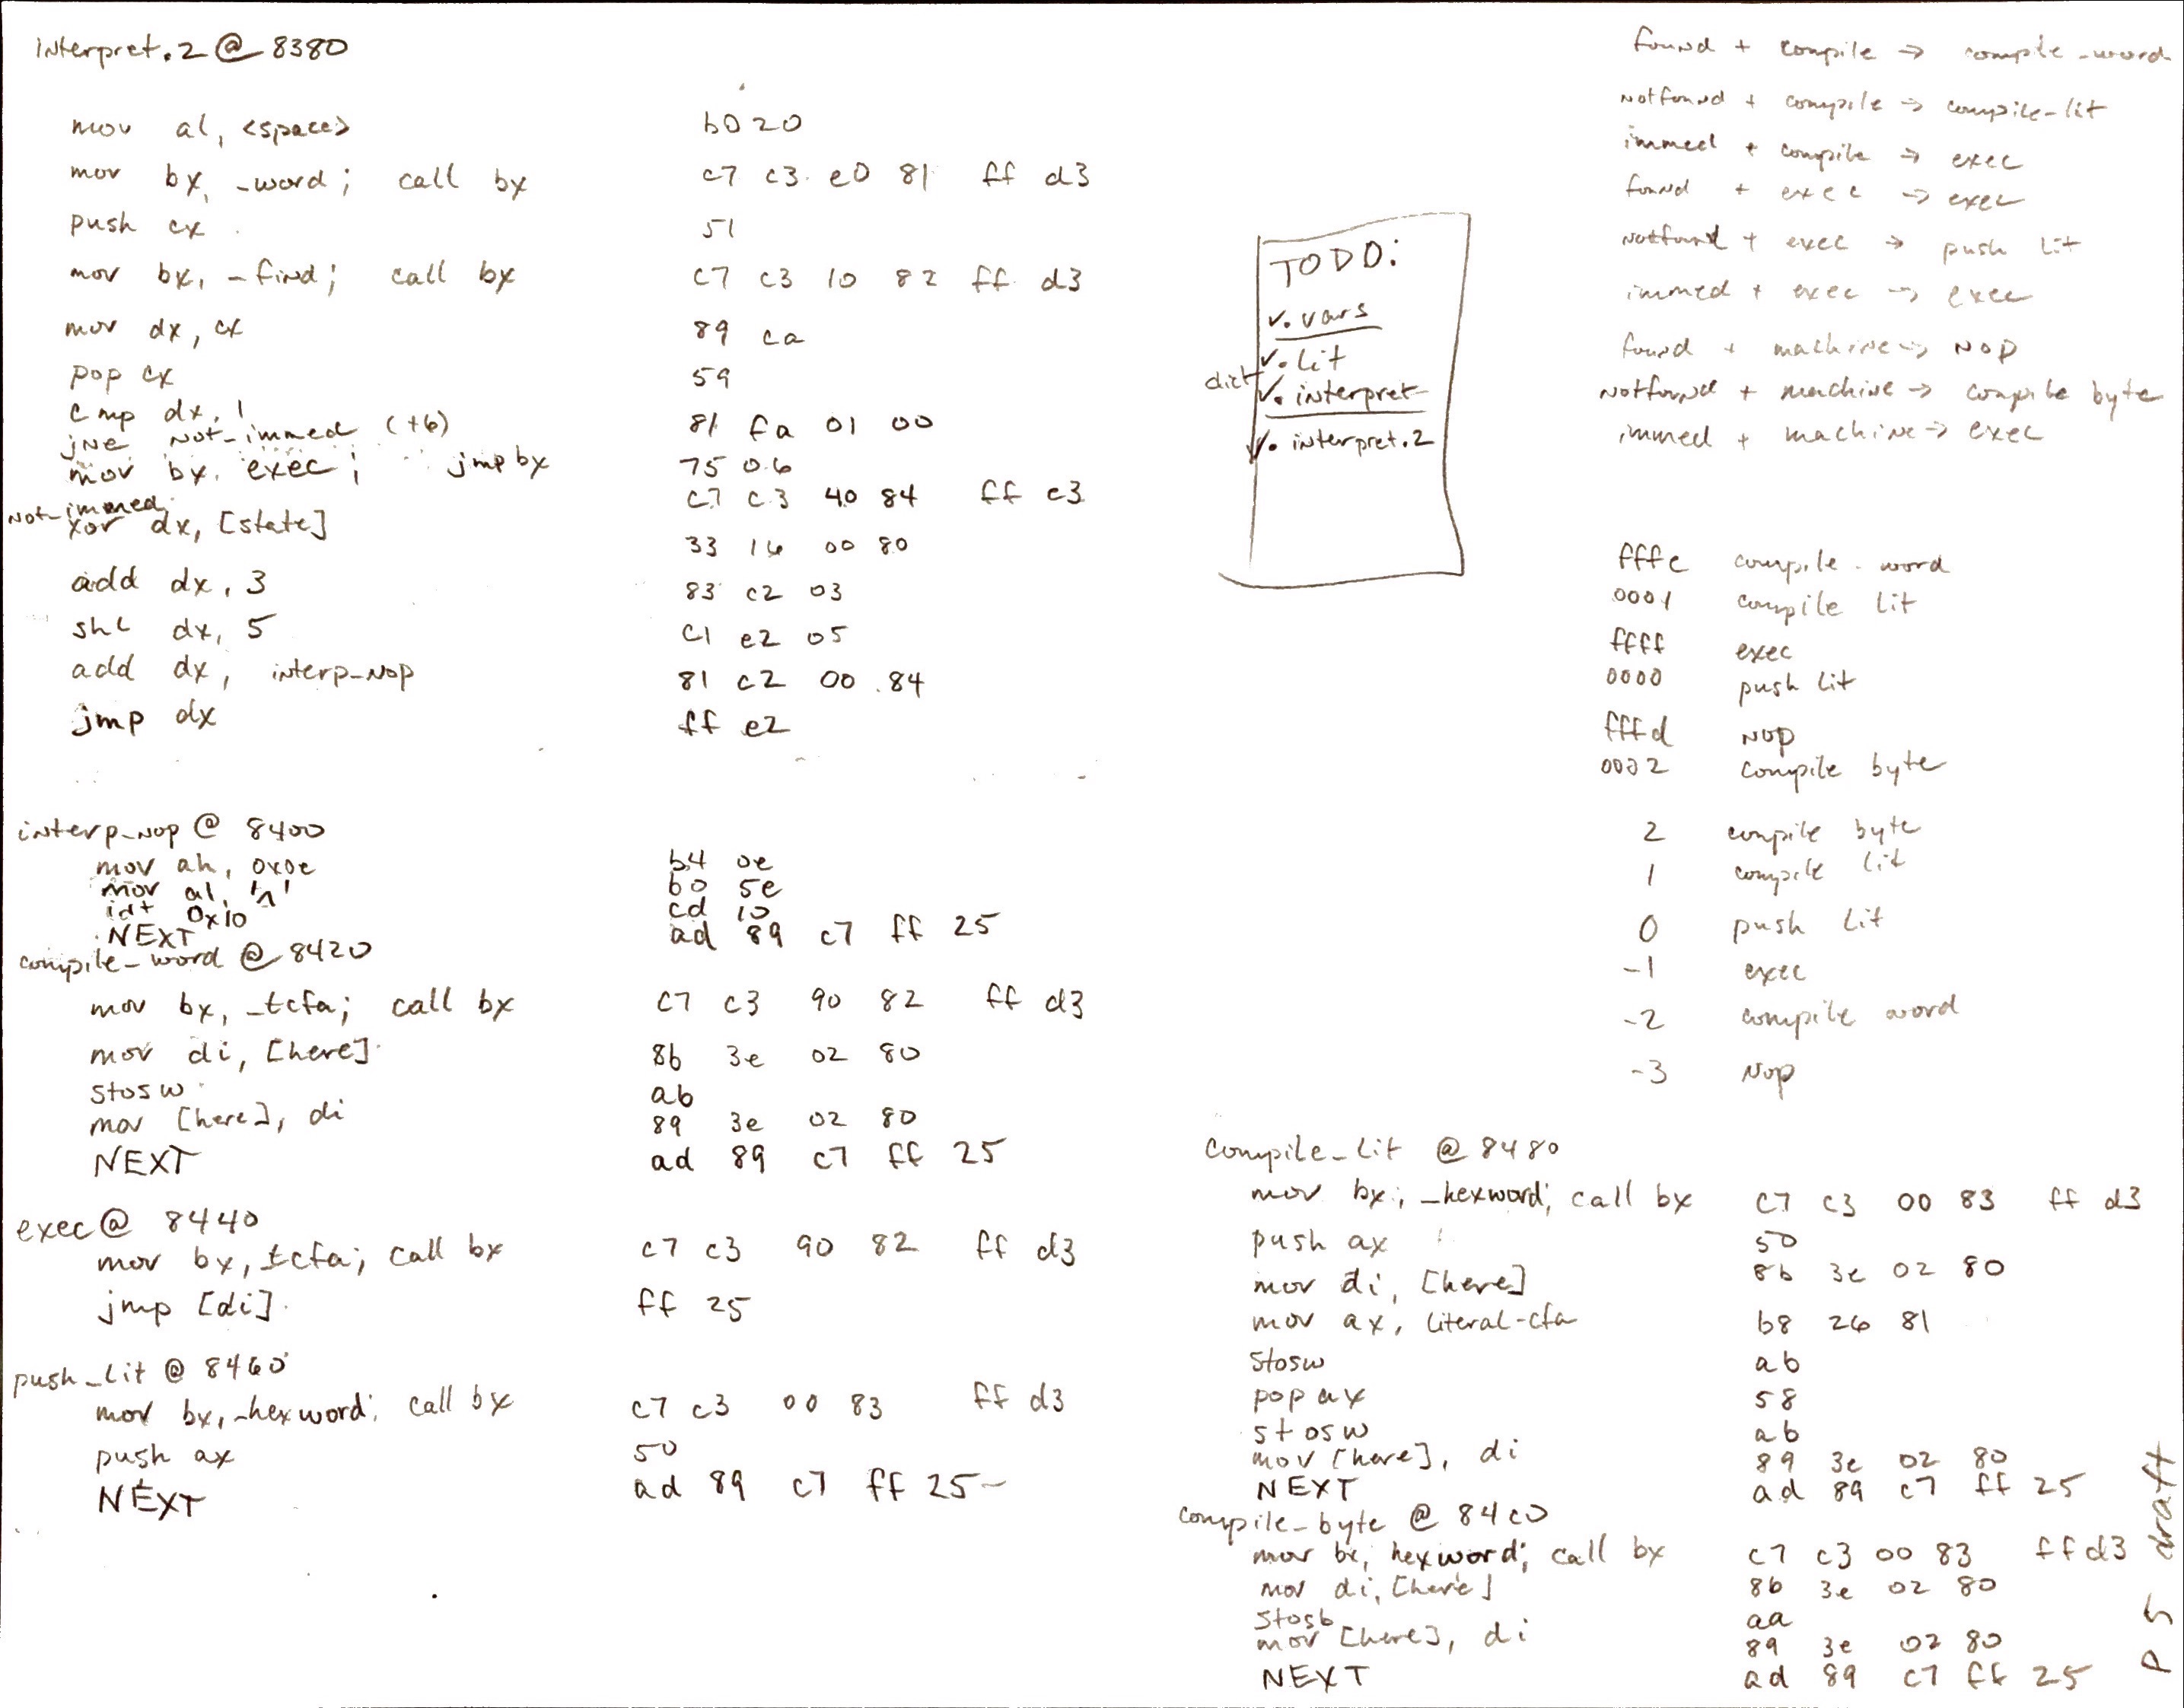 interpret.2 @ 8380
mov al, <space> b0 20
mov bx, _word; call bx c7 c3 e0 81 ff d3
push cx 51
mov bx, _find; call bx c7 c3 10 82 ff d3
mov dx, cx 89 ca
pop cx 59
cmp dx, 1 81 fa 01 00
jne not-immed (+6) 75 06
mov bx, exec; jmp bx c7 c3 40 84 ff e3
not-immed
xor dx, [state] 33 16 00 80
add dx, 3 83 c2 03
shl dx, 5 c1 e2 05
add dx, interp-nop 81 c2 00 84
jmp dx ff e2
interp-nop @ 8400
mov ah, 0x0e b4 0e
mov al, '^' b0 5e
int 0x10 cd 10
NEXT ad 89 c7 ff 25
compile-word @ 8420
mov bx, _tcfa; call bx c7 c3 90 82 ff d3
mov di, [here] 8b 3e 02 80
stosw ab
mov [here], di 89 3e 02 80
NEXT ad 89 c7 ff 25
exec @ 8440
mov bx, _tcfa; call bx c7 c3 90 82 ff d3
jmp [di] ff 25
push_lit @ 8460
mov bx, _hexword; call bx c7 c3 00 83 ff d3
push ax 50
NEXT ad 89 c7 ff 25
TODO:
✓. vars
✓. lit
dict ✓. interpret
✓. interpret.2
found + compile → compile-word
notfound + compile → compile-lit
immed + compile → exec
found + exec → exec
notfound + exec → push lit
immed + exec → exec
found + machine → nop
notfound + machine → compile byte
immed + machine → exec
fffe compile-word
0001 compile lit
ffff exec
0000 push lit
fffd nop
0002 compile byte
2 compile byte
1 compile lit
0 push lit
-1 exec
-2 compile word
-3 nop
compile_lit @ 8480
mov bx, _hexword; call bx c7 c3 00 83 ff d3
push ax 50
mov di, [here] 8b 3e 02 80
mov ax, literal-cfa b8 26 81
stosw ab
pop ax 58
stosw ab
mov [here], di 89 3e 02 80
NEXT ad 89 c7 ff 25
compile_byte @ 84c0
mov bx, hexword; call bx c7 c3 00 83 ff d3
mov di, [here] 8b 3e 02 80
stosb aa
mov [here], di 89 3e 02 80
NEXT ad 89 c7 ff 25
P5 draft